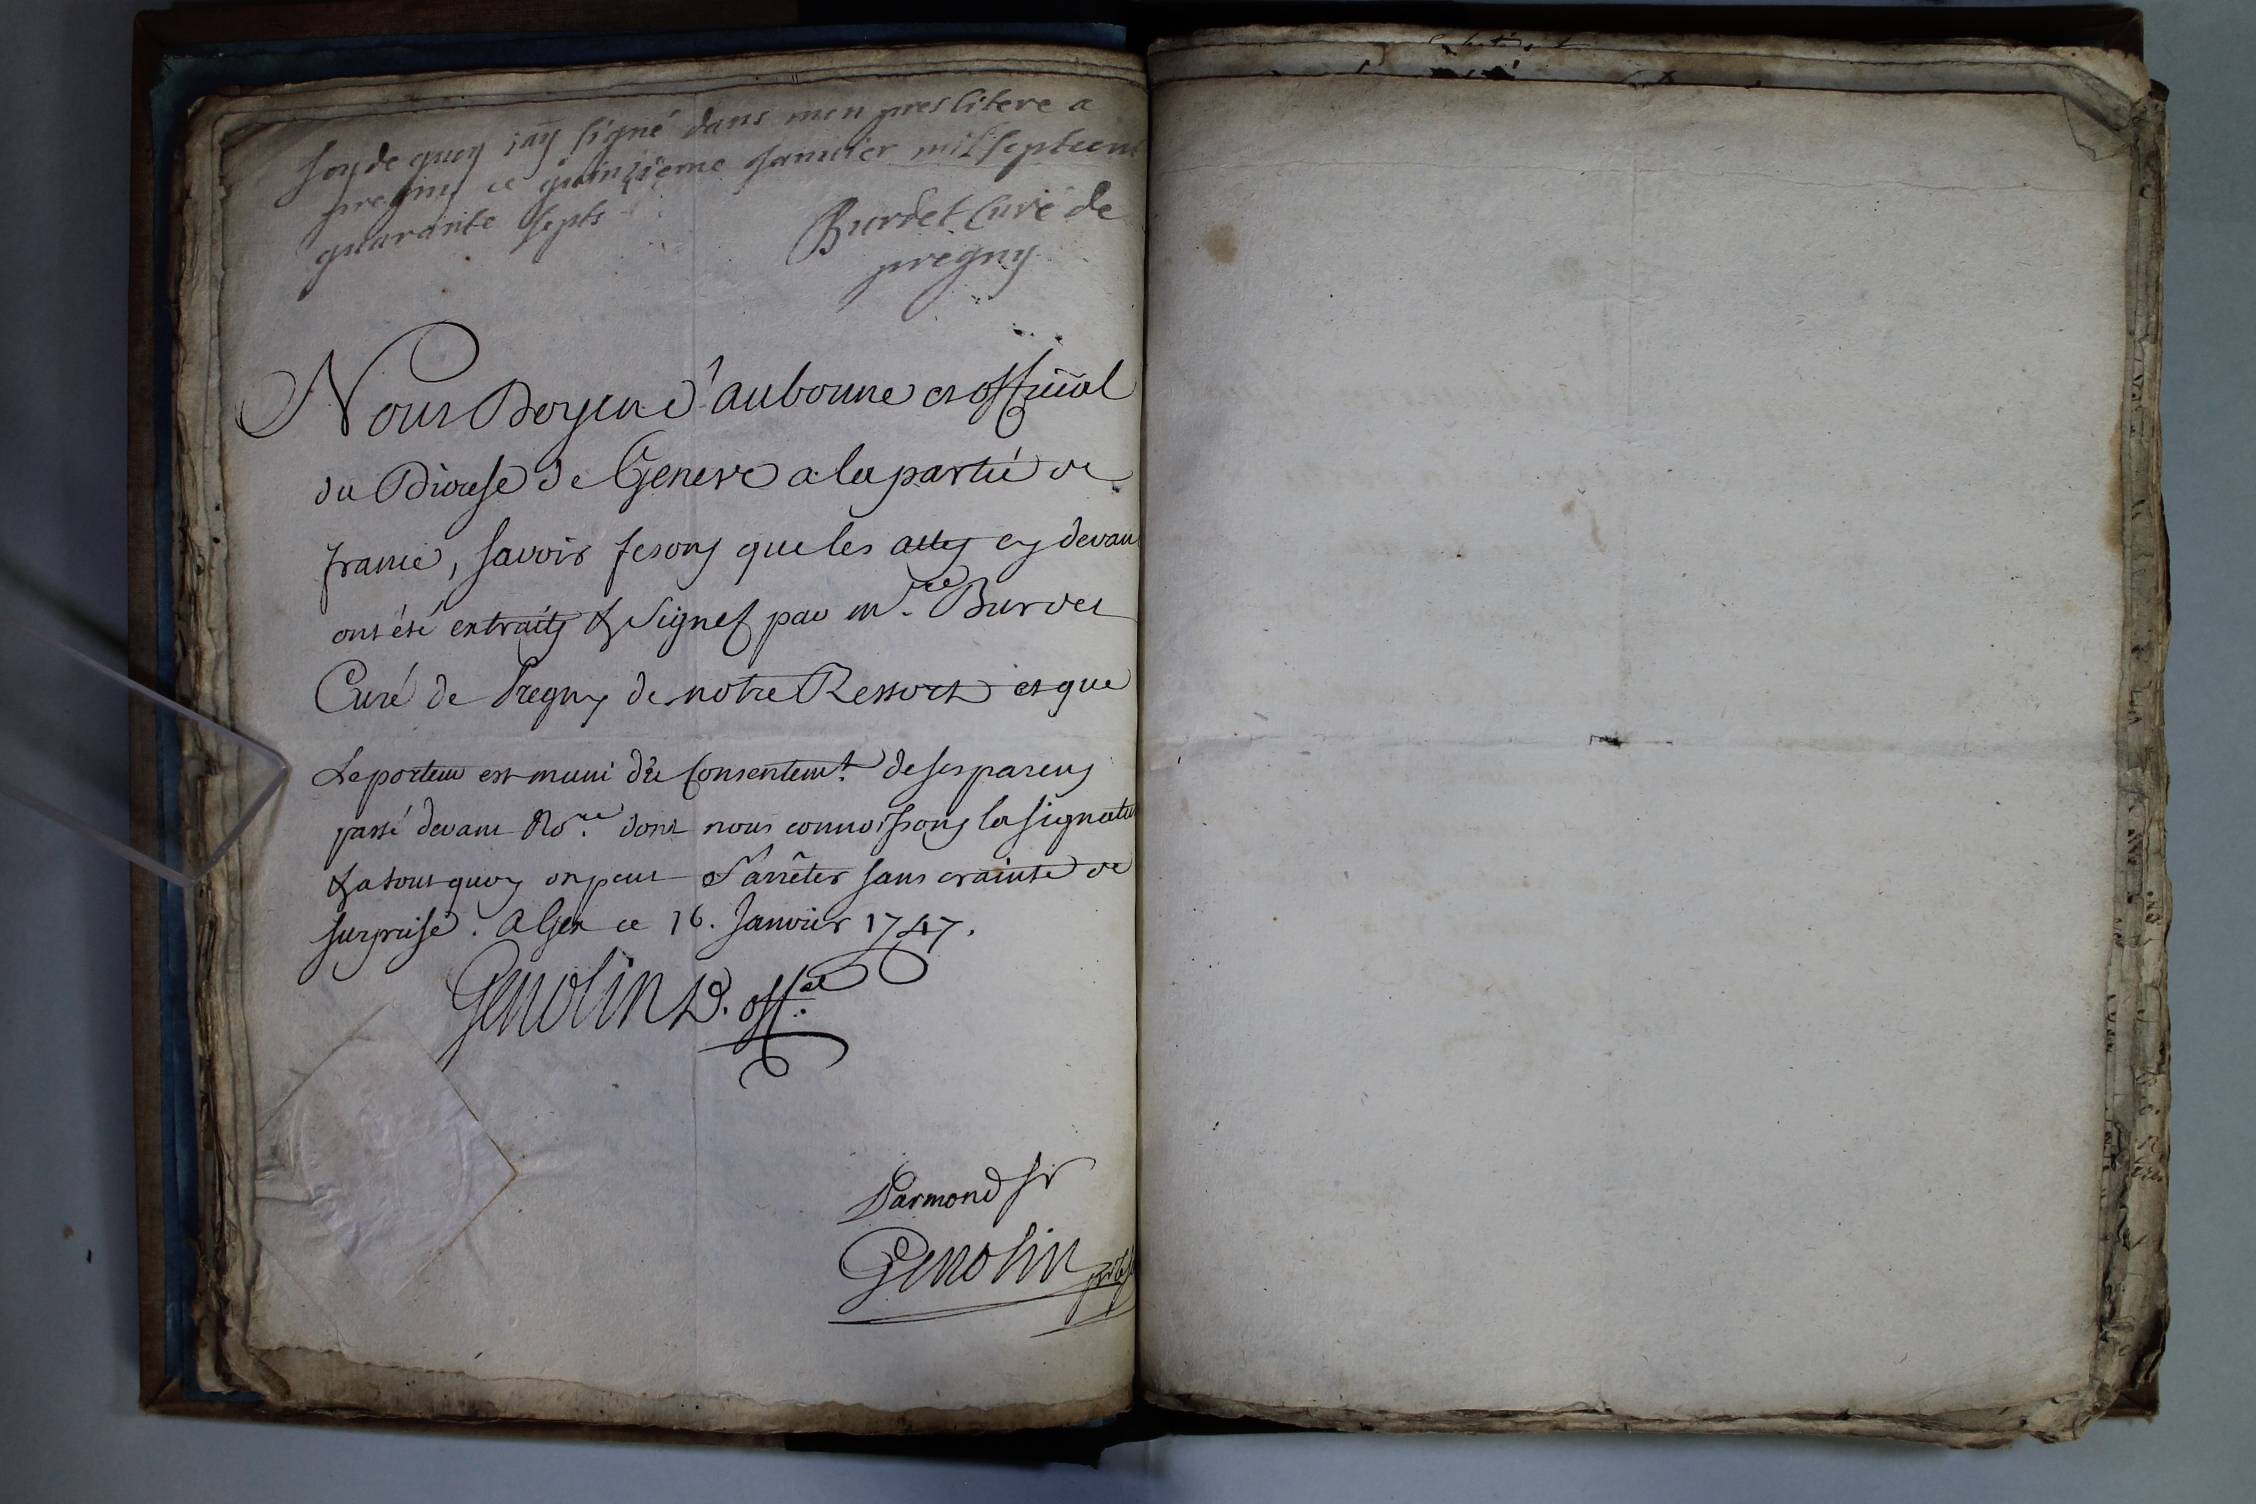 foy de quoy j'ay signé dans mon preslitere a
pregny ce quinzieme Janvier mil septcent
quarante septs
Burdet Curé de
pregny
Nous Doyen d'aubonne et official
du Diocese de Geneve a la partie de
france, savoir fesons que les actes cy devant
ont été extraits & signes par mre. Burdet
Curé de Pregny de notre Ressort et que
Le porteur est muni du Consentemt. de ses parens
passé devant Nore. dont nous connoissons la signature
& a tout quoy on peut s'arrêter sans crainte de
surprise. a Gex ce 16. Janvier 1747.
Genolin D. offal.
Darmond
Genolin